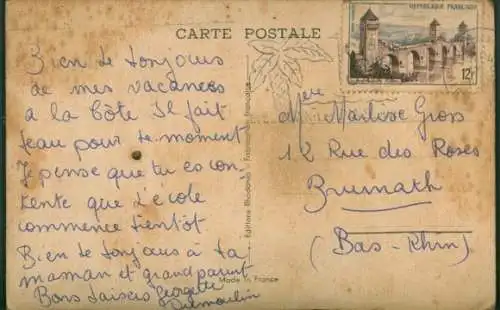 CARTE POSTALE
REPUBLIQUE FRANÇAISE
12F
Bien le bonjour
de mes vacances
a la Côte Il fait
beau pour le moment
Je pense que tu es con-
tente que L'ecole
commence bientôt.
Bien le bonjours à ta
maman et grand parent
Bons baisers Georgette
Editions Rhodania - Fabrication française
Made in France
Melle Marlise Gross
12 Rue des Roses
Brumath
(Bas-Rhin)